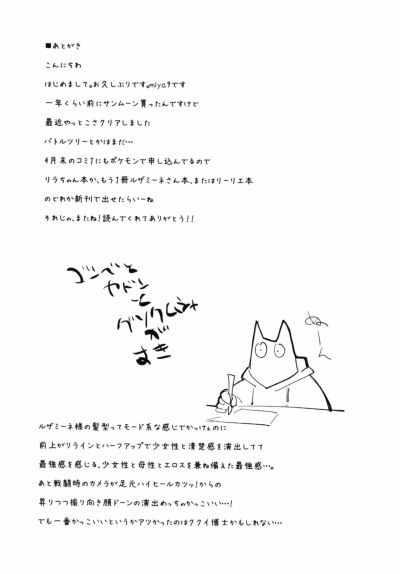 ■あとがき
こんにちわ
はじめまして。お久しぶりです。miya9です
一年くらい前にサンムーン買ったんですけど
最近やっとこさクリアしました
バトルツリーとかはまだ…
4月末のコミ1にもポケモンで申し込んでるので
リラちゃん本か、もう1冊ルザミーネさん本、またはリーリエ本
のどれか新刊で出せたらいーね
それじゃ、またね!読んでくれてありがとう!!
ゴンベと
ヤドン
と
グソクムシャ
が
すき
ぬーん
ルザミーネ様の髪型ってモード系な感じでかっけぇのに
前上がりラインとハーフアップで少女性と清楚感を演出してて
最強感を感じる。少女性と母性とエロスを兼ね備えた最強感…。
あと戦闘時のカメラが足元ハイヒールカツッ!からの
昇りつつ振り向き顔ドーンの演出めっちゃかっこいい…!
でも一番かっこいいというかアツかったのはククイ博士かもしれない…